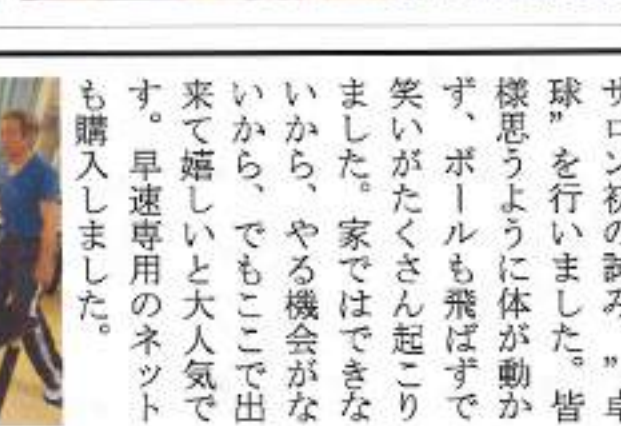 サロン初の試み、”卓
球”を行いました。皆
様思うように体が動か
ず、ボールも飛ばずで
笑いがたくさん起こり
ました。家ではできな
いから、やる機会がな
いから、でもここで出
来て嬉しいと大人気で
す。早速専用のネット
も購入しました。